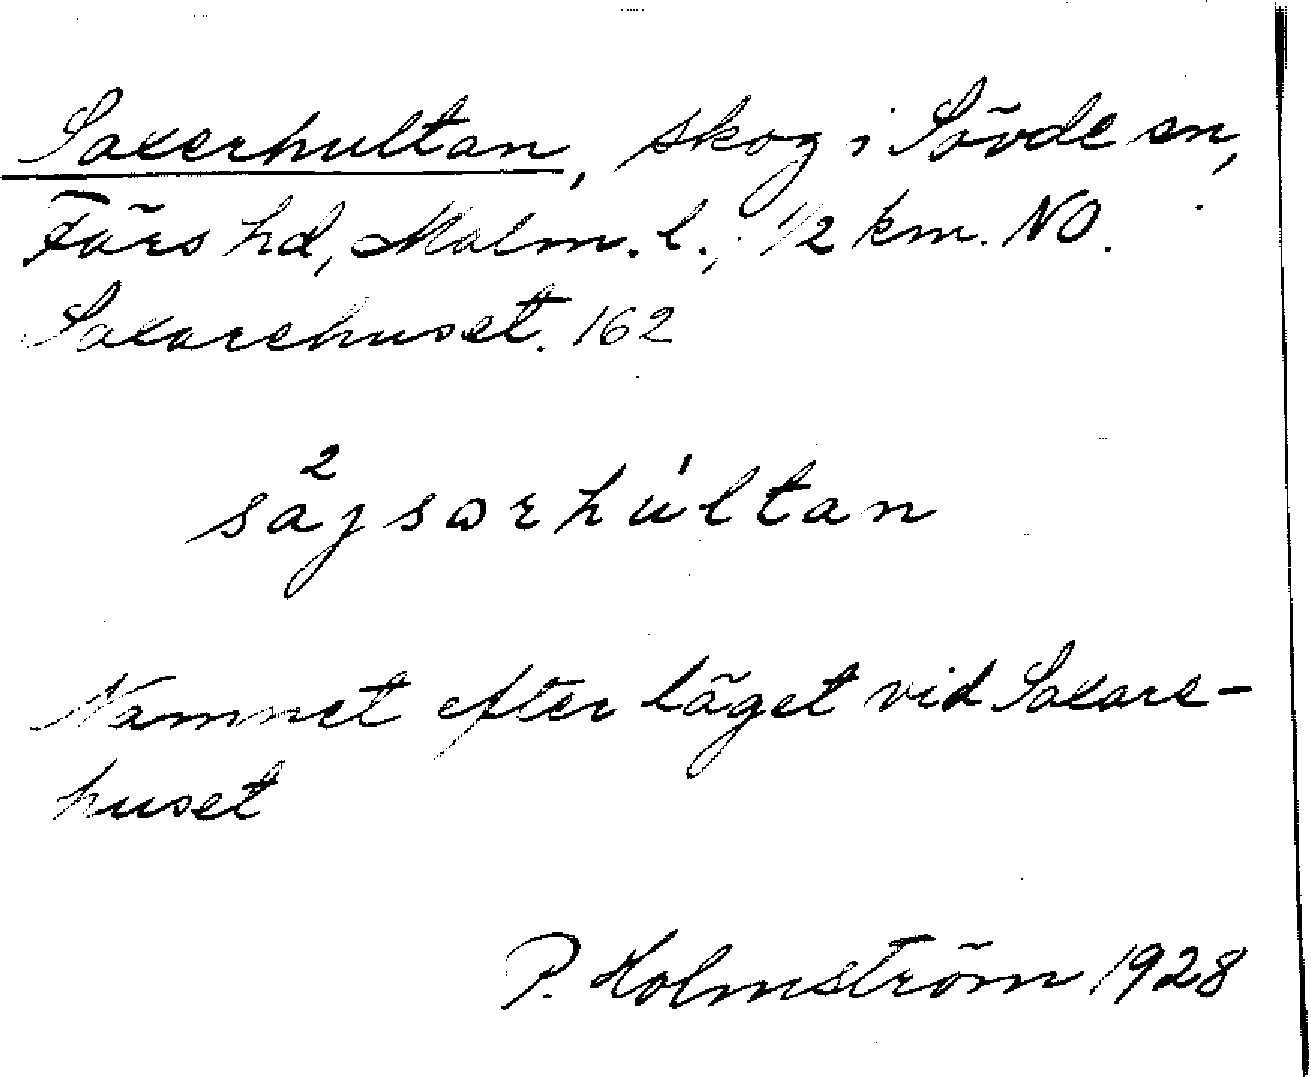 Saxerhultan, skog i Sövde sn,
Färs hd, Malm. l., 1/2 km. NO.
Saxarehuset. 162
2
sájsɷrhúltan
Namnet efter läget vid Saxare-
huset
P. Holmström 1928